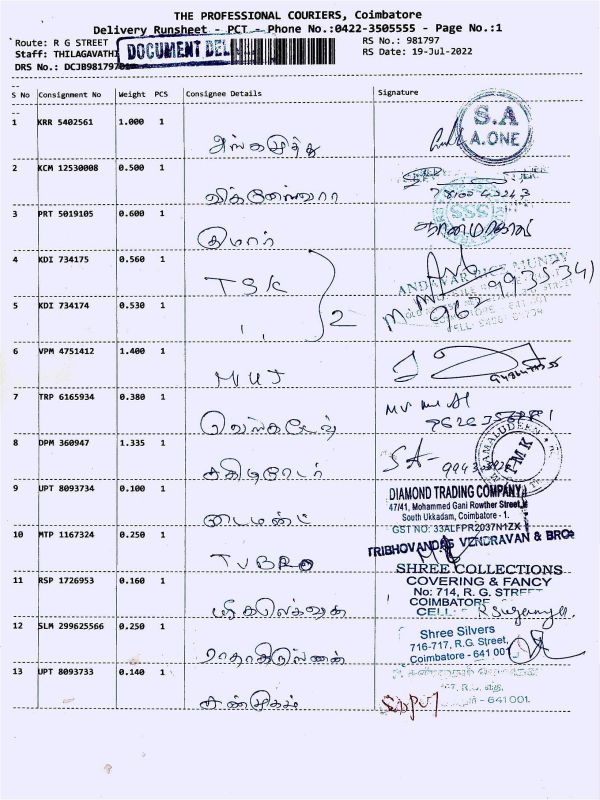 THE PROFESSIONAL COURIERS, Coimbatore
Delivery Runsheet - PCT - Phone No.:0422-3505555 - Page No.:1
Route: R G STREET
RS No.: 981797
Staff: THILAGAVATHI
DOCUMENT DEL
RS Date: 19-Jul-2022
DRS No.: DCJB98179701
S No Consignment No Weight PCS Consignee Details Signature
1 KRR 5402561 1.000 1
அங்கமுத்து
S.A
A.ONE
2 KCM 12530008 0.500 1
விக்னேஸ்வரா
3 PRT 5019105 0.600 1
குமார்
SSS
4 KDI 734175 0.560 1
TSK
ANDAVAR RICE MUNDY
5 KDI 734174 0.530 1
" 2
6 VPM 4751412 1.400 1
MUJ
7 TRP 6165934 0.380 1
வெங்கடேஷ்
8 DPM 360947 1.335 1
JAMALUDEEN
TMK
SA-
9 UPT 8093734 0.100 1
டைமண்ட்
DIAMOND TRADING COMPANY
47/41, Mohammed Gani Rowther Street,
South Ukkadam, Coimbatore - 1.
GST NO: 33ALFPR2037N1ZX
10 MTP 1167324 0.250 1
TVBRO
TRIBHOVANDAS VENDRAVAN & BROS
11 RSP 1726953 0.160 1
ஸ்ரீ கலெக்ஷன்
SHREE COLLECTIONS
COVERING & FANCY
No: 714, R. G. STREET
COIMBATORE
CELL:
R Suganya
12 SLM 299625566 0.250 1
ராதாகிருஷ்ணன்
Shree Silvers
716-717, R.G. Street,
Coimbatore - 641 001
13 UPT 8093733 0.140 1
சண்முகம்
- 641 001.